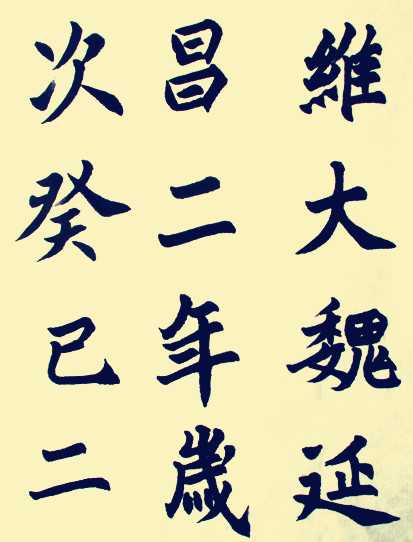 維大魏延
昌二年歲
次癸巳二